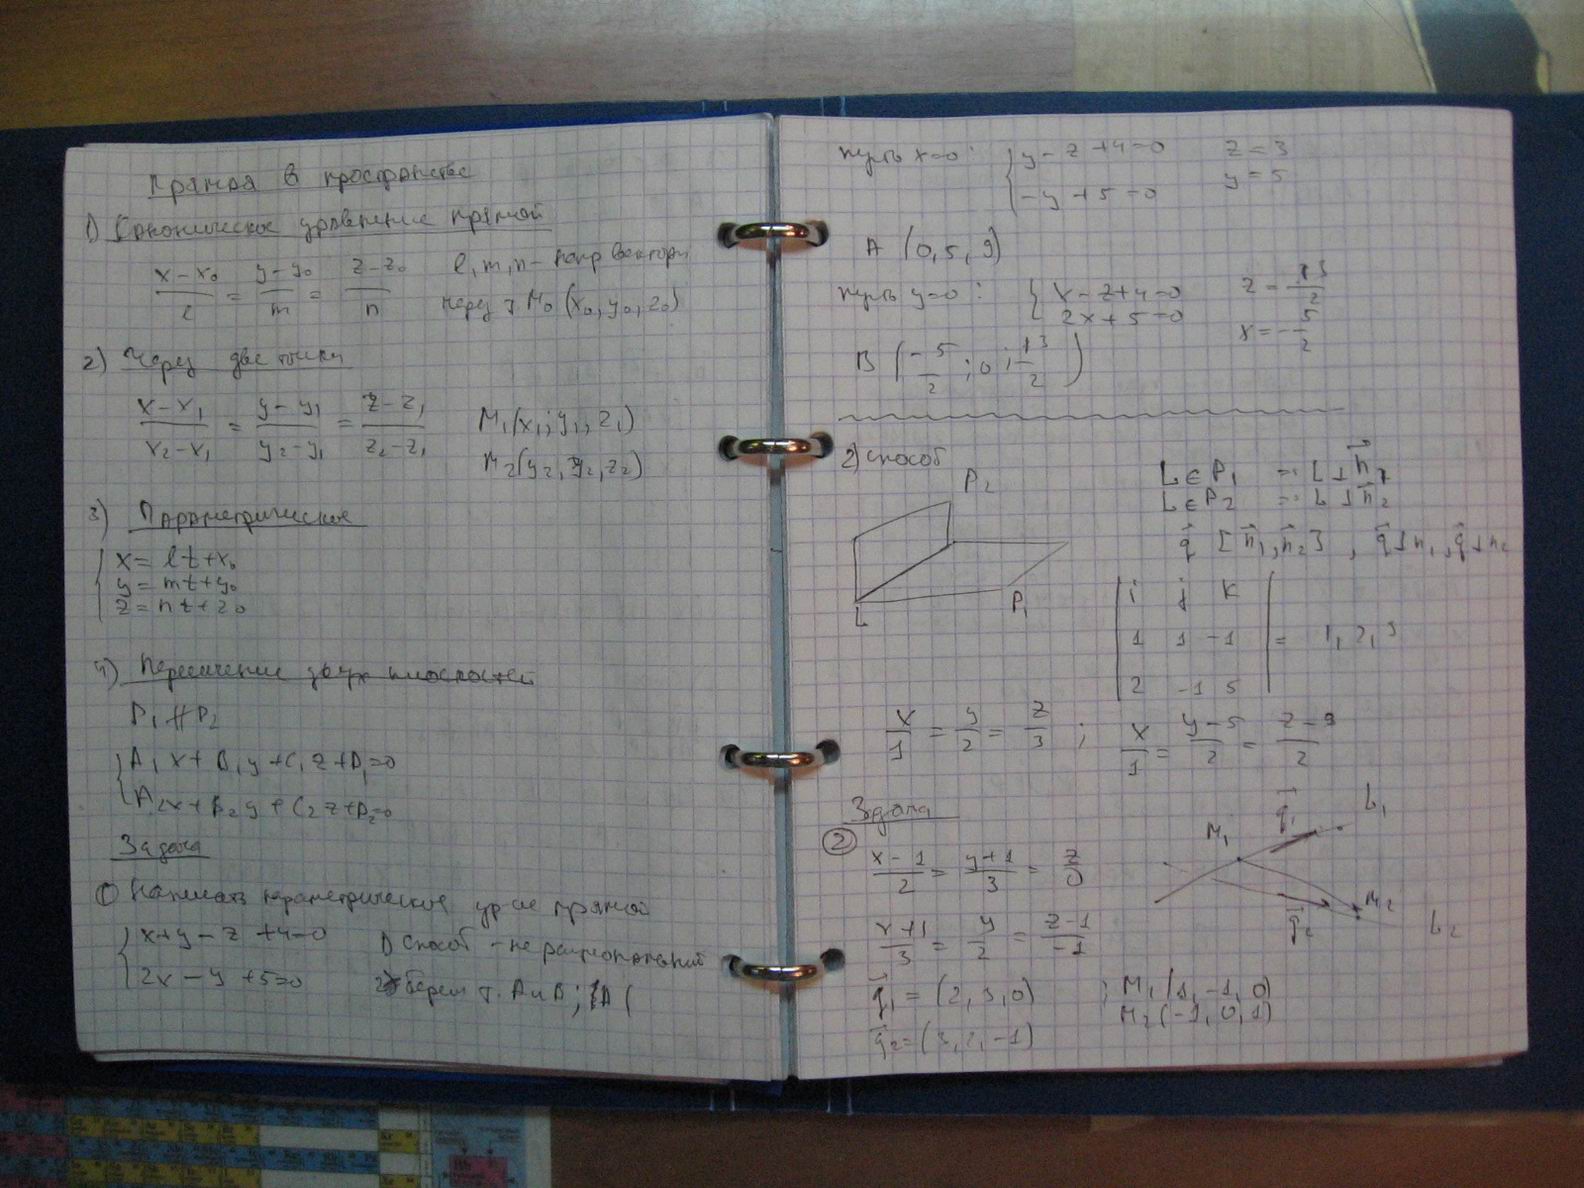 Прямая в пространстве
1) Каноническое уравнение прямой
(x-x₀)/l = (y-y₀)/m = (z-z₀)/n   l, m, n - напр вектори
через т M₀ (x₀, y₀, z₀)
2) Через две точки
(x-x₁)/(x₂-x₁) = (y-y₁)/(y₂-y₁) = (z-z₁)/(z₂-z₁)   M₁(x₁; y₁, z₁)
M₂(y₂, y₂, z₂)
3) Параметрическое
x = lt+x₀
y = mt+y₀
z = nt+z₀
4) Пересечение двух плоскостей
P₁ ∦ P₂
A₁x + B₁y + C₁z + D₁=0
A₂x + B₂y + C₂z + D₂=0
Задача
① Написать параметрическое ур-ие прямой
x+y-z+4=0   1) способ - не рациональный
2x-y+5=0   берем т. A и B; A (
пусть x=0: y-z+4=0   z=3
-y+5=0   y=5
A (0, 5, 9)
пусть y=0: x-z+4=0   z=13/2
2x+5=0   x=-5/2
B (-5/2; 0; 13/2)
2) способ
P₂
L ∈ P₁ => L ⊥ n⃗₁
L ∈ P₂ => L ⊥ n⃗₂
q⃗ [n⃗₁, n⃗₂], q⃗ ⊥ n₁, q⃗ ⊥ n₂
L   P₁
i j k
1 1 -1 = 1, 2, 3
2 -1 5
x/1 = y/2 = z/3 ; x/1 = (y-5)/2 = (z-9)/2
Задача
②
(x-1)/2 = (y+1)/3 = z/0
M₁   q⃗₁   L₁
M₂   q⃗₂   L₂
(x+1)/3 = y/2 = (z-1)/-1
q⃗₁ = (2, 3, 0) ; M₁ (1, -1, 0)
q⃗₂ = (3, 2, -1)   M₂ (-1, 0, 1)